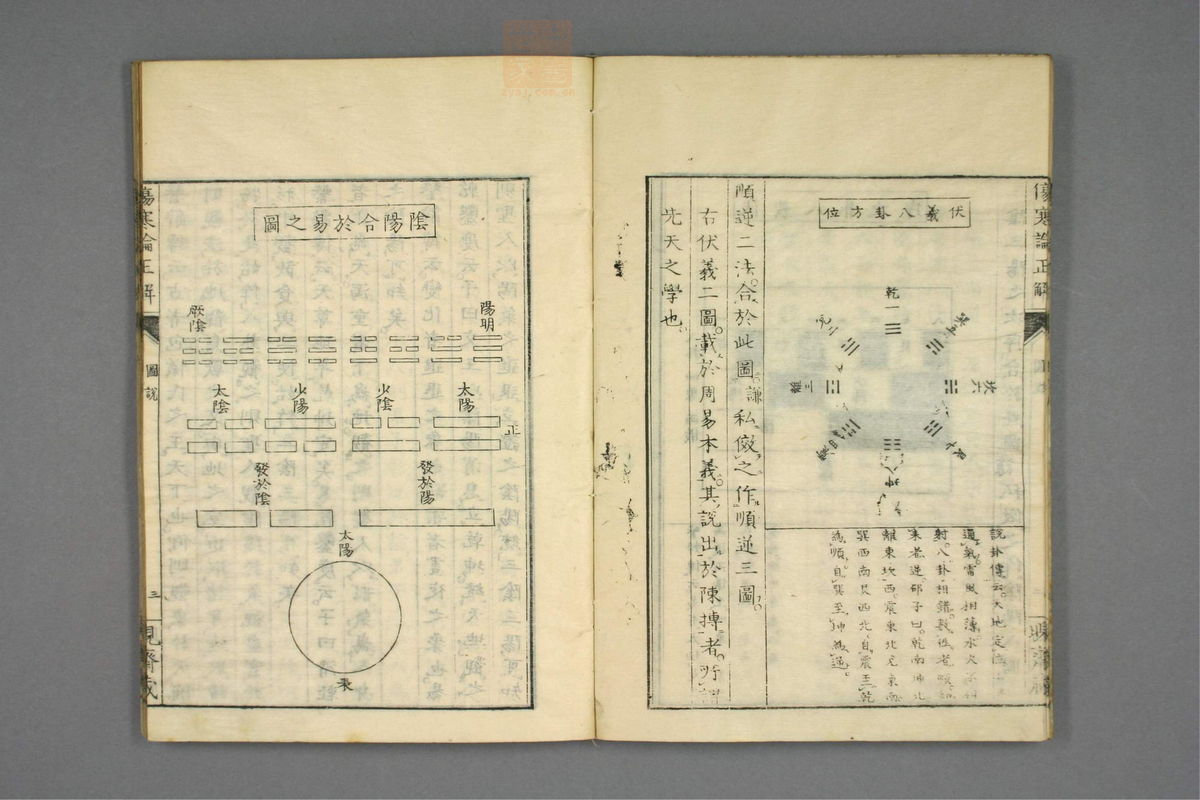 伏羲八卦方位
乾一
兌二
離三
巽五
坎六
坤八
說卦傳云天地定位
通氣雷風相薄水火不相
射八卦相錯數往者順知
來者逆邵子曰乾南坤北
離東坎西震東北兌東南
巽西南艮西北自震至乾
為順自巽至坤為逆
順逆二法合於此圖謙私傚之作順逆三圖
右伏羲二圖載於周易本義其說出於陳摶者所謂
先天之學也
傷寒論正解
傷寒論正解
圖說
三
陰陽合於易之圖
陽明
厥陰
太陽
少陰
少陽
太陰
正
發於陽
發於陰
太陽
表